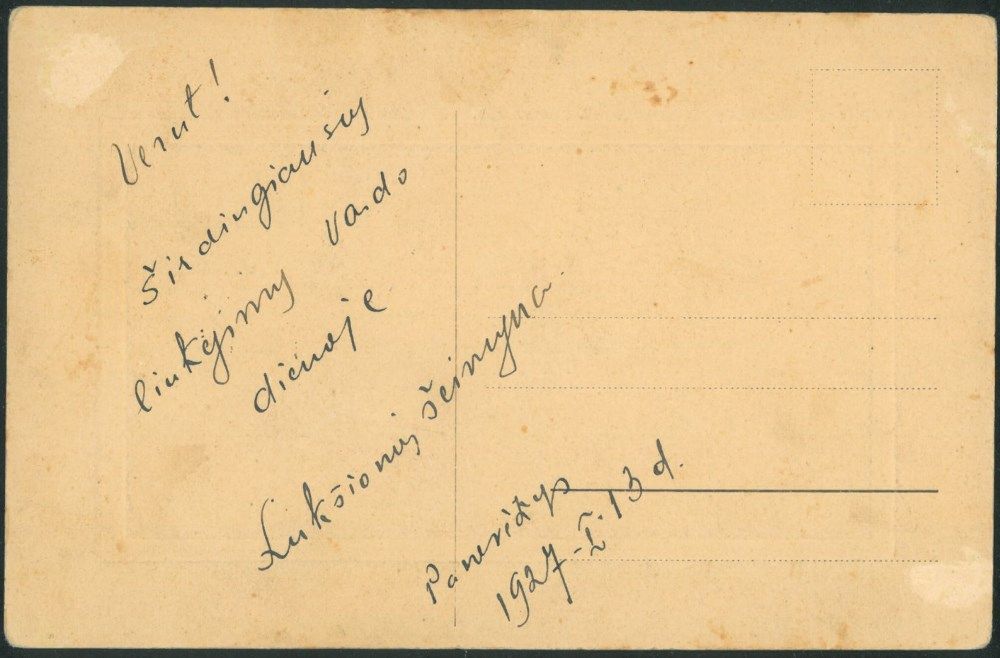 Verut!
Širdingiausių
linkėjimų vardo
dienoje
Lukšionių šeimyna
Panevėžys
1927-I-13 d.